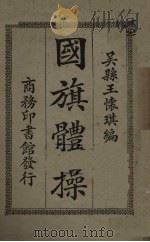 吳縣王懷琪編
國旗體操
商務印書館發行